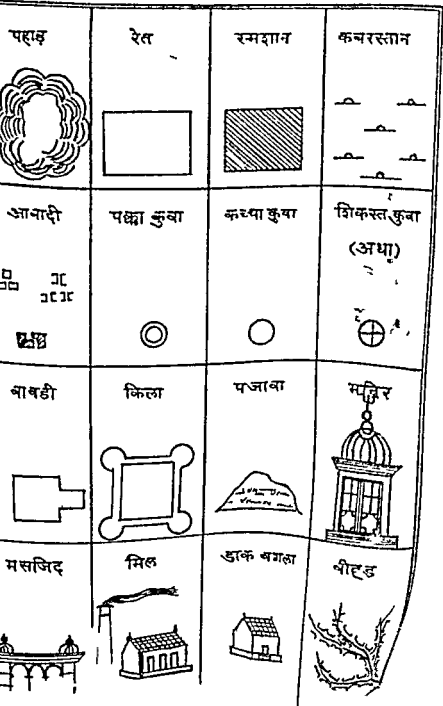 पहाड़
रेत
स्मशान
कबरस्तान
आबादी
पक्का कुवा
कच्चा कुवा
शिकस्त कुवा
(अधा)
बावडी
किला
पजावा
मन्दिर
मसजिद
मिल
डाक बगला
बीहड